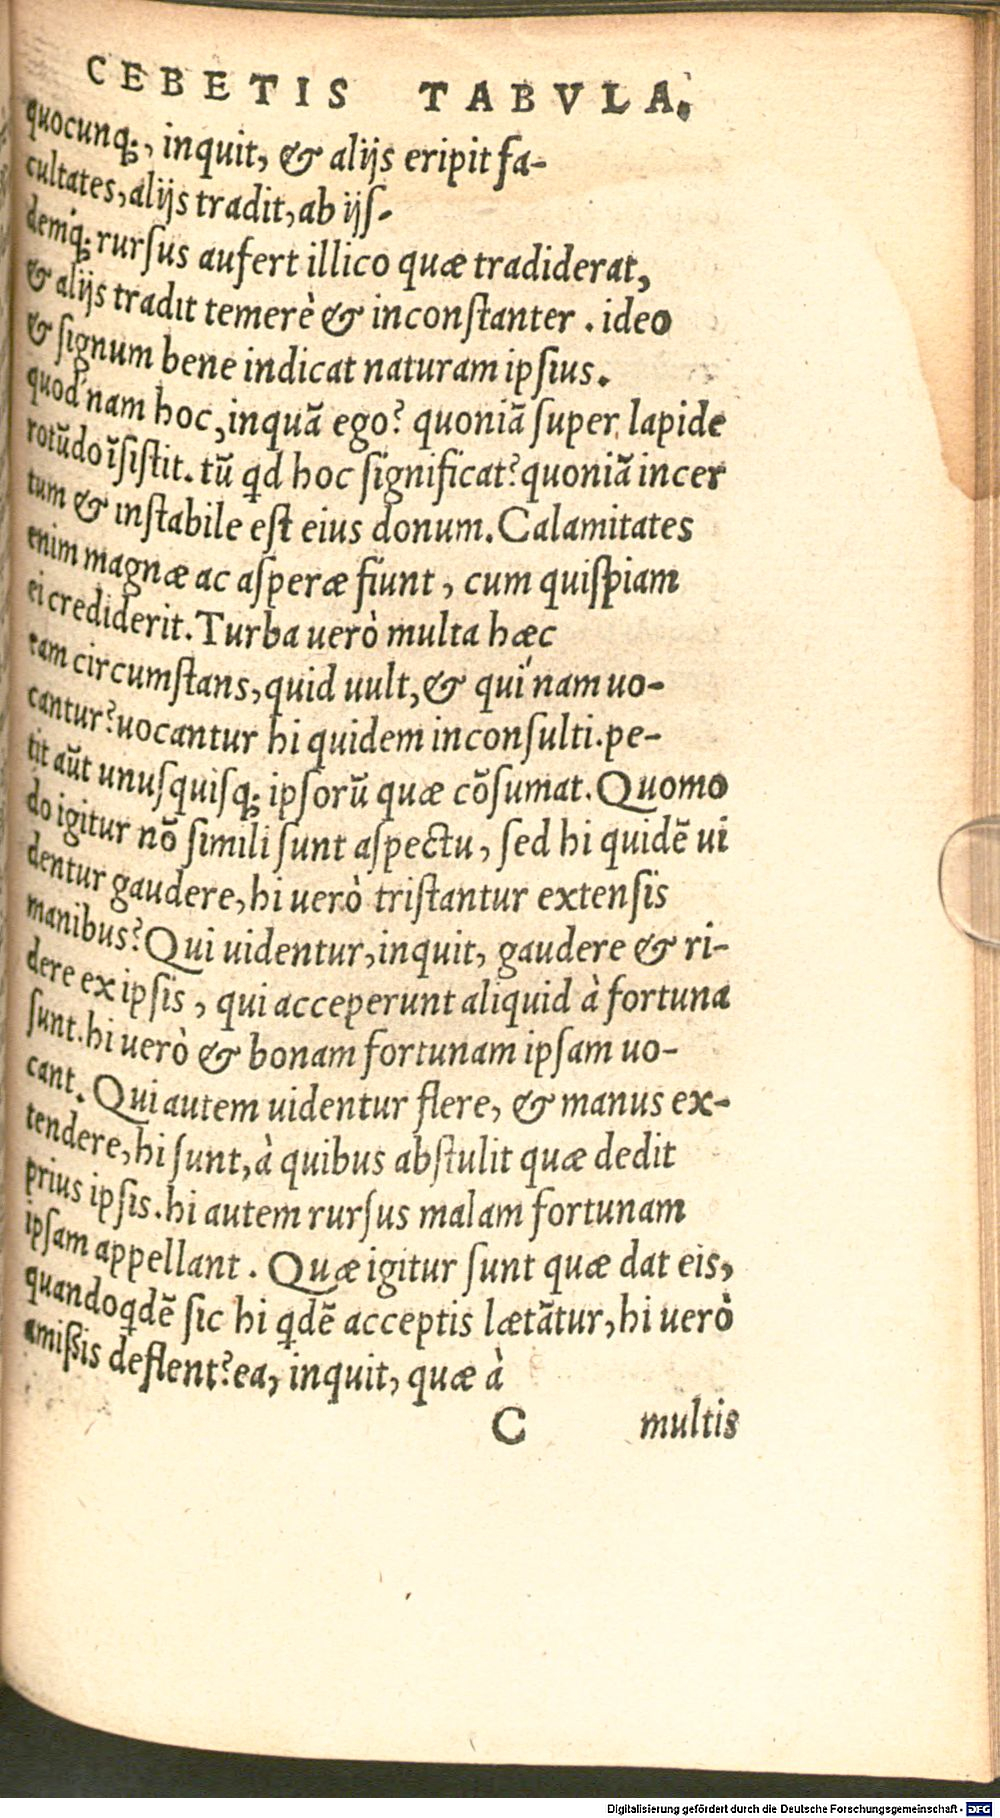 CEBETIS TABVLA.
quocunq;, inquit, & alijs eripit fa-
cultates, alijs tradit, ab ijſ-
demq; rurſus aufert illico quæ tradiderat,
& alijs tradit temerè & inconſtanter . ideo
& ſignum bene indicat naturam ipſius.
quod'nam hoc, inquã ego? quoniã ſuper lapide
rotũdo ĩſiſtit. tũ qd hoc ſignificat? quoniã incer
tum & inſtabile eſt eius donum. Calamitates
enim magnæ ac aſperæ fiunt, cum quiſpiam
ei crediderit. Turba uerò multa hæc
eam circumſtans, quid uult, & qui'nam uo-
cantur? uocantur hi quidem inconſulti. pe-
tit aũt unuſquiſq; ipſorũ quæ cõſumat. Quomo
do igitur nõ ſimili ſunt aſpectu, ſed hi quidẽ ui
dentur gaudere, hi uerò triſtantur extenſis
manibus? Qui uidentur, inquit, gaudere & ri-
dere ex ipſis, qui acceperunt aliquid à fortuna
ſunt. hi uerò & bonam fortunam ipſam uo-
cant. Qui autem uidentur flere, & manus ex-
tendere, hi ſunt, à quibus abſtulit quæ dedit
prius ipſis. hi autem rurſus malam fortunam
ipſam appellant . Quæ igitur ſunt quæ dat eis,
quandoqdẽ ſic hi qdẽ acceptis lætãtur, hi uerò
amiſsis deflent? ea, inquit, quæ à
C multis
Digitalisierung gefördert durch die Deutsche Forschungsgemeinschaft - DFG